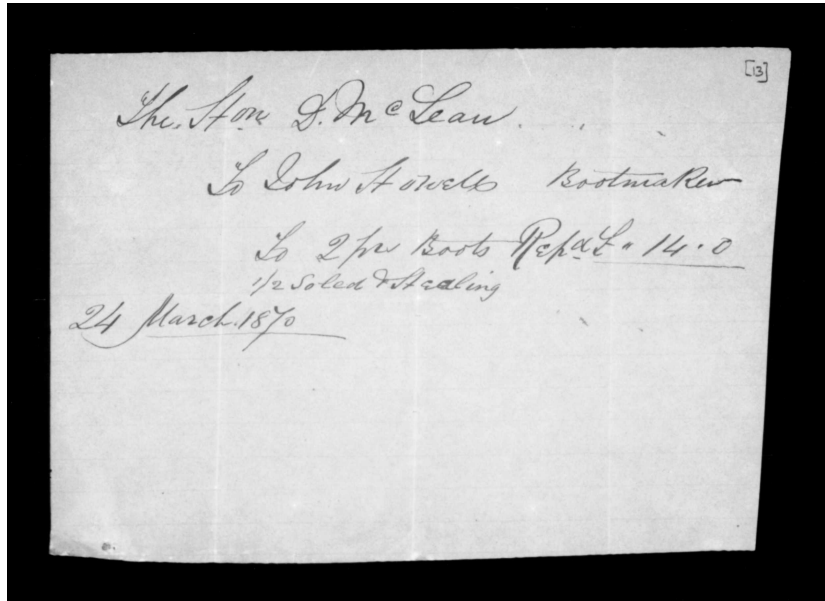 [13]
The. Hon. D. McLean.
To John Howells Bootmaker
To 2 prs Boots Repd £ " 14 . 0
1/2 Soled & Heeling
24 March. 1870